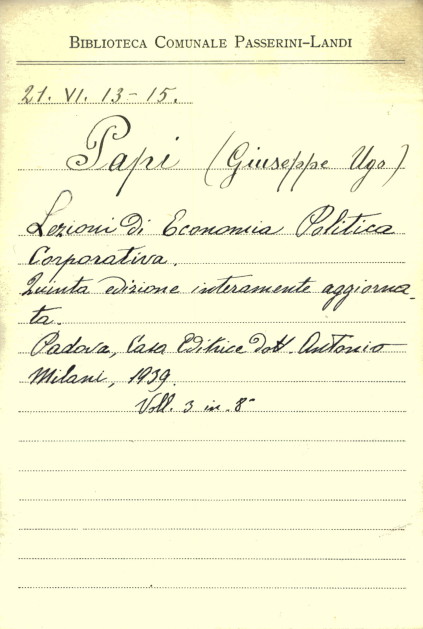 BIBLIOTECA COMUNALE PASSERINI-LANDI
21. VI. 13-15.
Papi (Giuseppe Ugo)
Lezioni di Economia Politica
Corporativa.
Quinta edizione interamente aggiorna-
ta.
Padova, Casa Editrice dott. Antonio
Milani, 1939.
Voll. 3 in. 8°